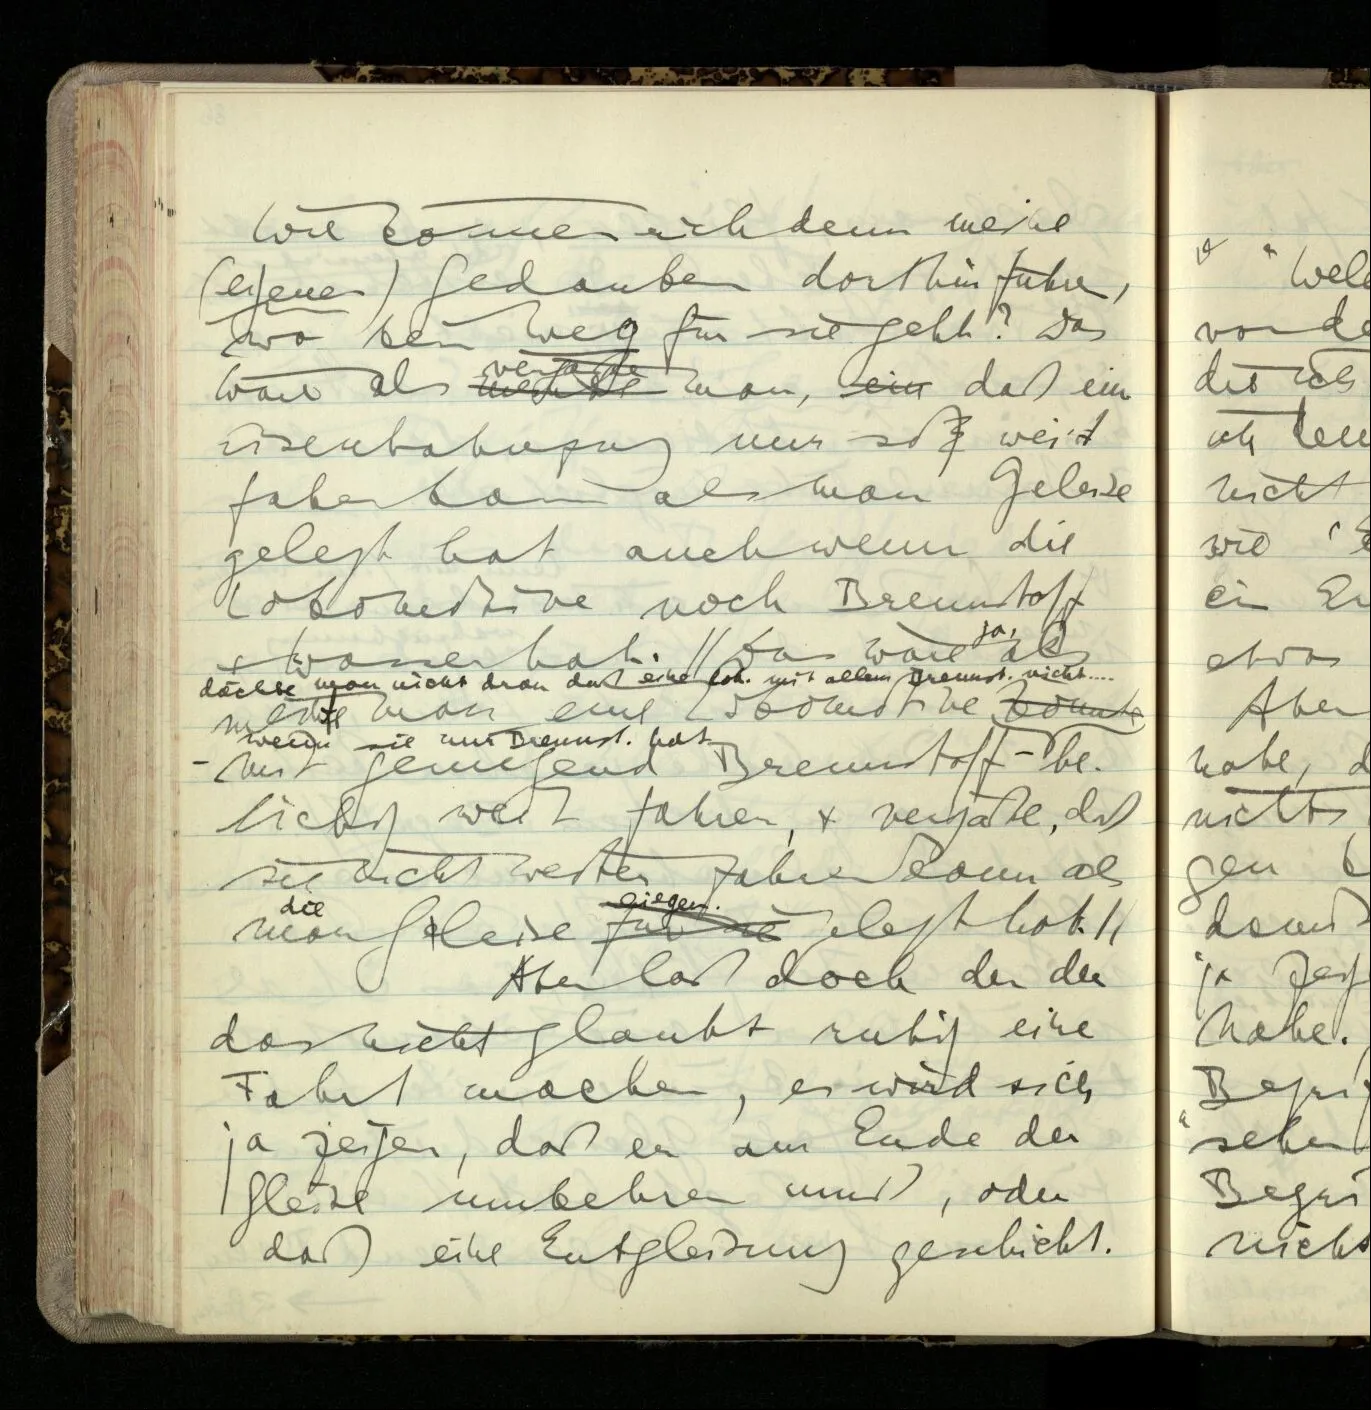 Wie können mich denn meine
(eigenen) Gedanken dorthin führen,
wo kein Weg für sie geht? Das
vergäße
wäre als man, ein daß ein
Eisenbahnzug nur so weit
fahren kann als man Geleise
gelegt hat auch wenn die
Lokomotive noch Brennstoff
ja,
+ Wasser hat. // Das wäre als
dächte man nicht dran daß eine Lok. mit allem Brennst. nicht....
man eine Lokomotive könnte
wenn sie nur Brennst. hat
– mit genügend Brennstoff – be-
liebig weit fahren, + vergäße, daß
sie nicht weiter fahren kann als
die liegen.
man Geleise für sie gelegt hat. //
Aber laß doch den der
das nicht glaubt ruhig eine
Fahrt machen, es wird sich
ja zeigen, daß er am Ende der
Gleise umkehren muß, oder
daß eine Entgleisung geschieht.
von de
nicht
wie
etwas
Aber
habe, d
nichts
gen
damit
ja zeig
habe.
Begri
"sehen
Begri
nichts